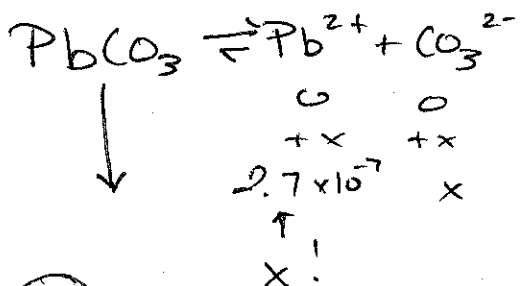 PbCO₃ ⇌ Pb²⁺ + CO₃²⁻
0 0
+x +x
2.7 × 10⁻⁷ x
x!